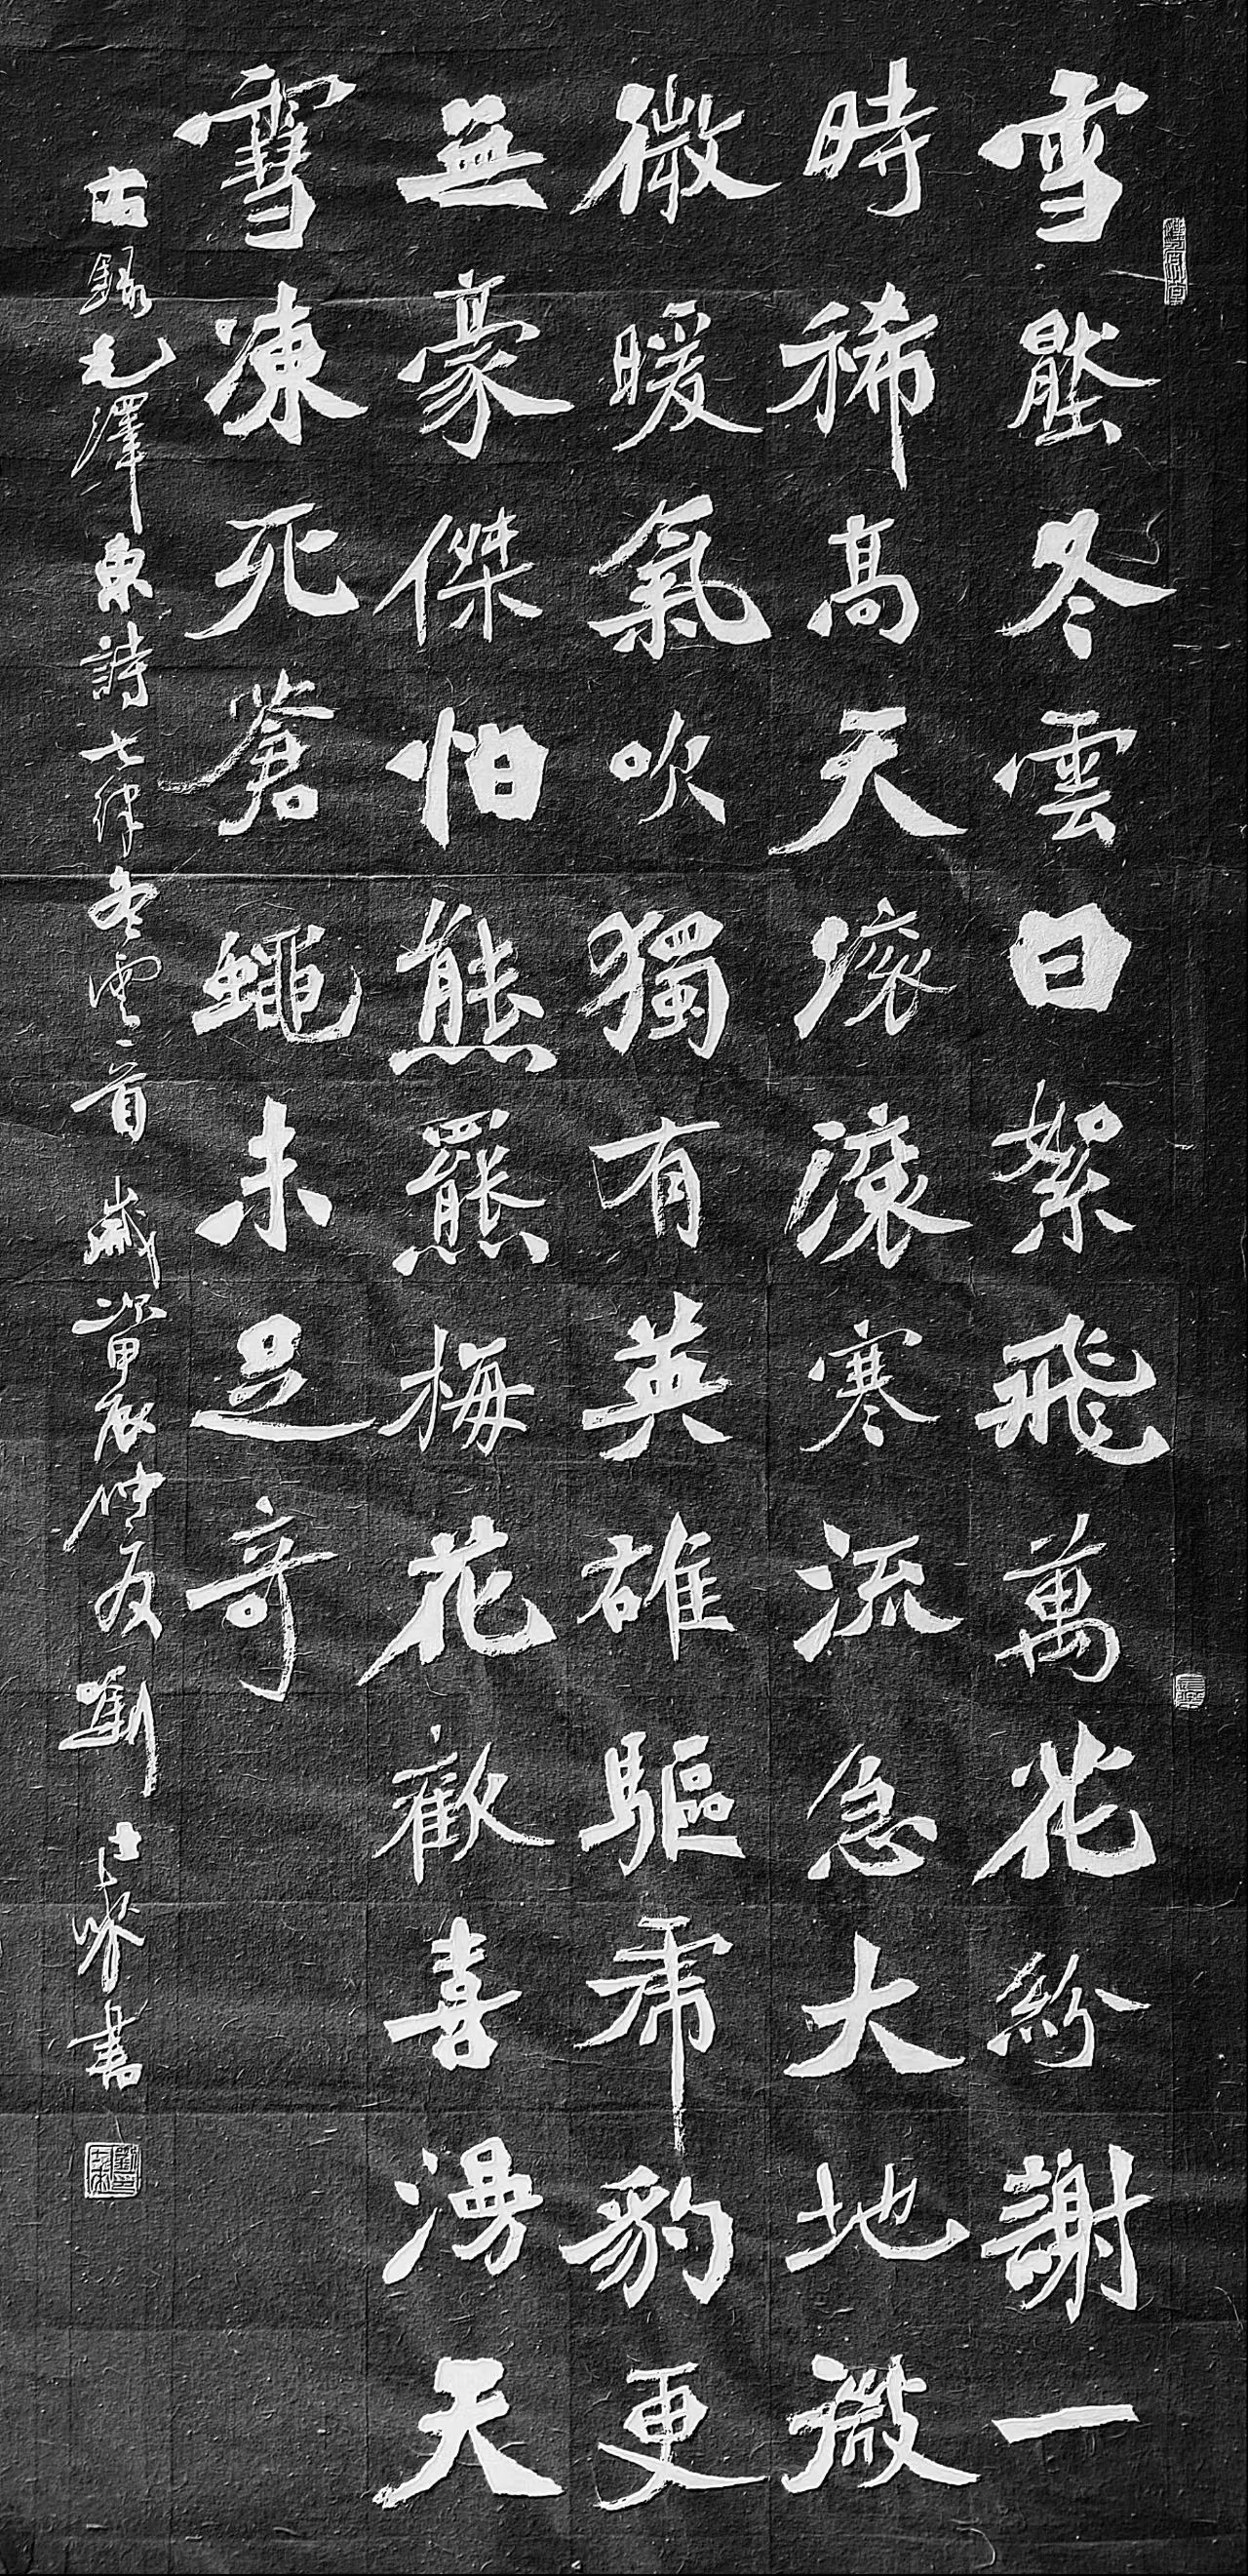 雪壓冬雲白絮飛萬花紛謝一
時稀高天滾滾寒流急大地微
微暖氣吹獨有英雄驅虎豹更
無豪傑怕熊羆梅花歡喜漫天
雪凍死蒼蠅未足奇
右錄毛澤東詩七律冬雲一首 歲次甲辰仲夏劉士書